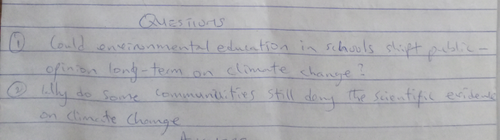 Questions
① Could environmental education in schools shift public-
opinion long-term on climate change?
② Why do some communities still deny the scientific evidence
on climate change